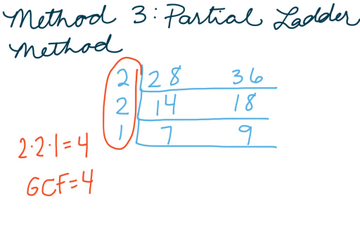 Method 3: Partial Ladder
Method
2 28 36
2 14 18
1 7 9
2·2·1=4
GCF=4